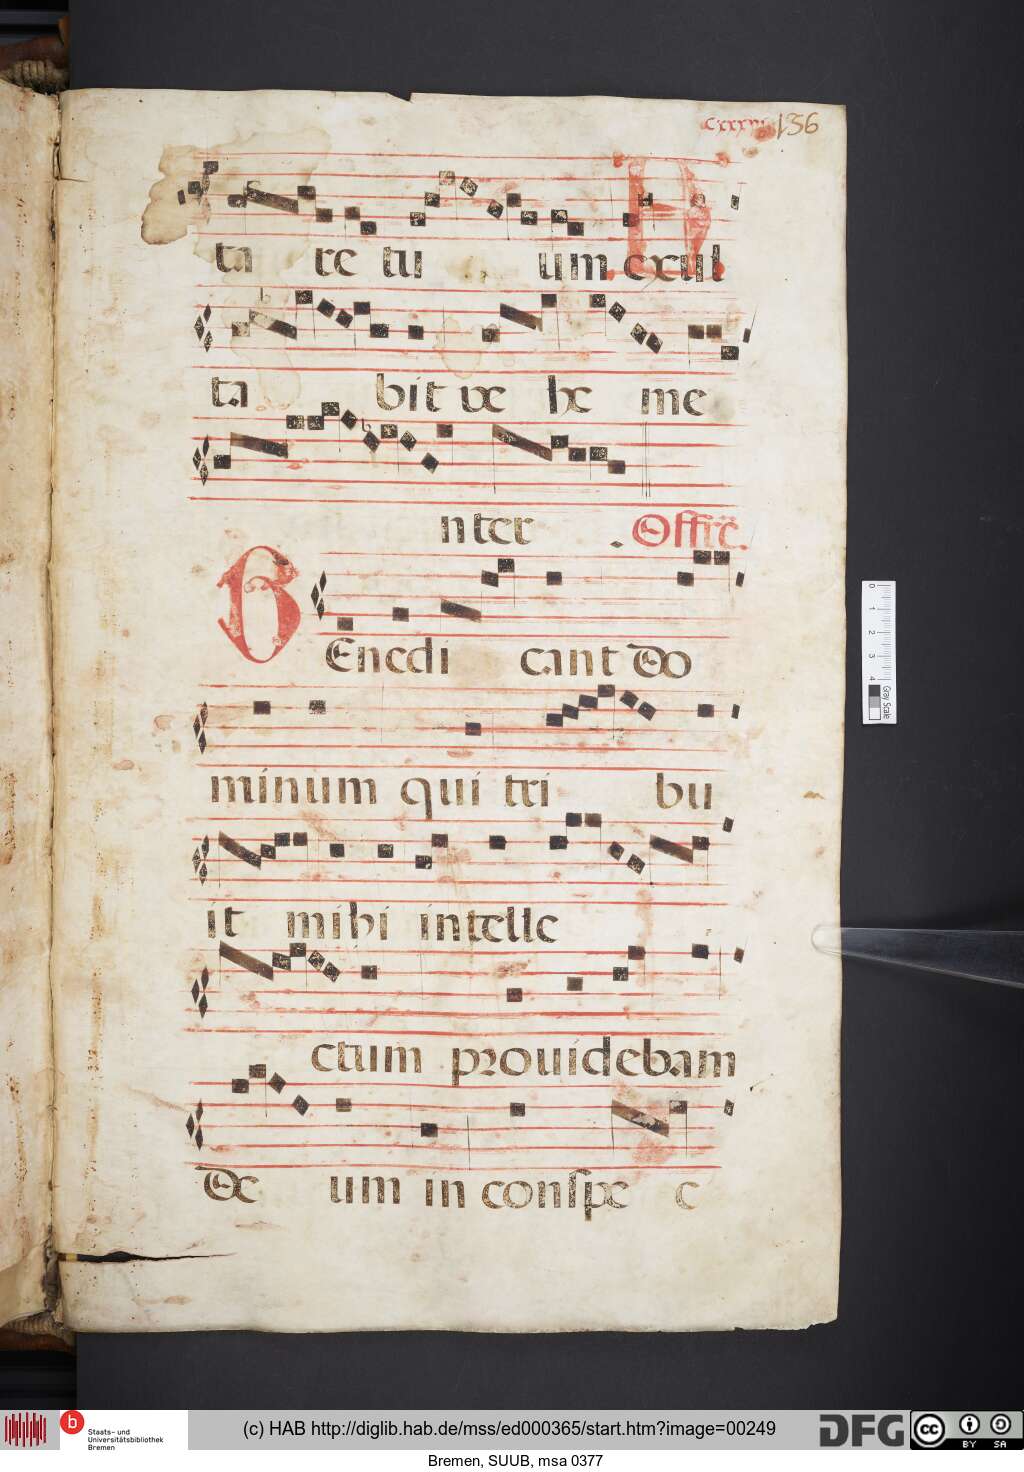 cxxxvi 136
ta re tu um exul
ta bit ve he me
nter Offre.
BEnedi cant Do
minum qui tri bu
it mihi intelle
ctum prouidebam
De um in conspe c
0 1 2 3 4
Gray Scale
b Staats- und
Universitätsbibliothek
Bremen
(c) HAB http://diglib.hab.de/mss/ed000365/start.htm?image=00249
DFG
cc BY SA
Bremen, SUUB, msa 0377